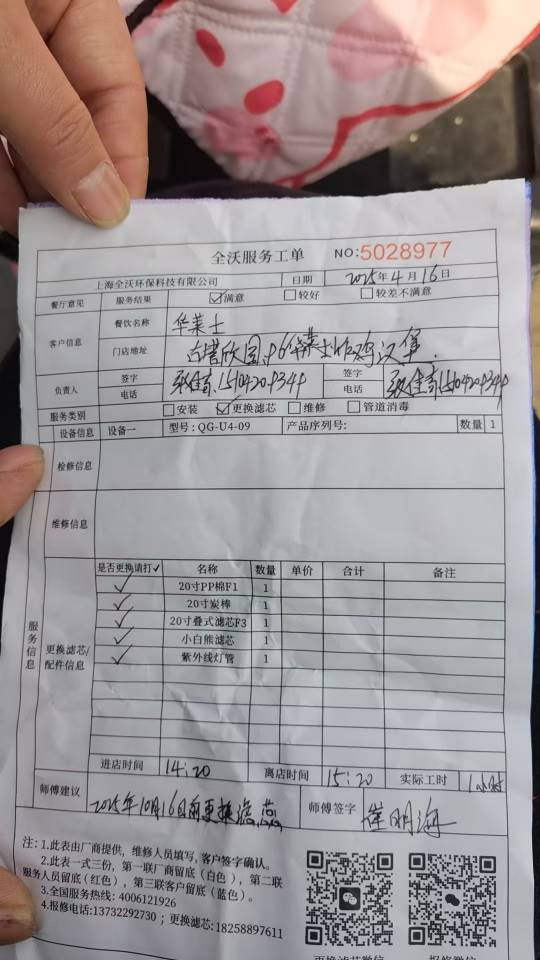 全沃服务工单 NO:5028977
上海全沃环保科技有限公司 日期 2025年4月16日
餐厅意见 服务结果 ☑满意 ☐较好 ☐较差不满意
客户信息 餐饮名称 华莱士
门店地址 炸鸡汉堡
负责人 签字 电话 签字 电话
服务类别 ☐安装 ☑更换滤芯 ☐维修 ☐管道消毒
设备信息 设备一 型号:QG-U4-09 产品序列号: 数量 1
检修信息
维修信息
服务信息 更换滤芯/配件信息
是否更换请打✓ 名称 数量 单价 合计 备注
✓ 20寸PP棉F1 1
✓ 20寸炭棒 1
✓ 20寸叠式滤芯F3 1
✓ 小白熊滤芯 1
✓ 紫外线灯管 1
进店时间 14:20 离店时间 15:20 实际工时 1小时
师傅建议 2025年10月16日前更换滤芯 师傅签字 崔明海
注: 1.此表由厂商提供, 维修人员填写, 客户签字确认。
2.此表一式三份, 第一联厂商留底(白色), 第二联
服务人员留底(红色), 第三联客户留底(蓝色)。
3.全国服务热线: 4006121926
4.报修电话:13732292730 ; 更换滤芯:18258897611
更换滤芯微信 报修微信